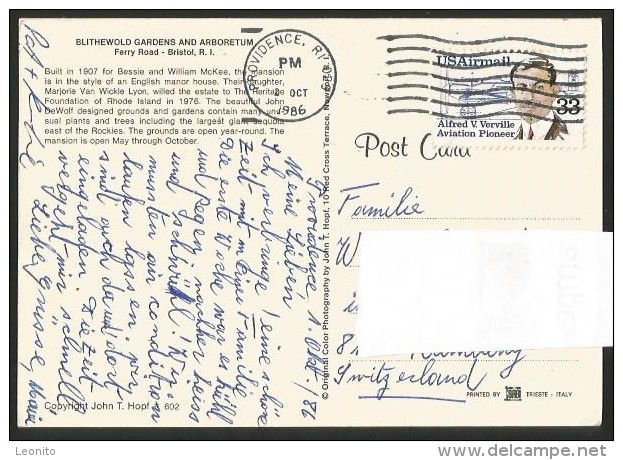 BLITHEWOLD GARDENS AND ARBORETUM
Ferry Road - Bristol, R. I.
Built in 1907 for Bessie and William McKee, the mansion
is in the style of an English manor house. Their daughter,
Marjorie Van Wickle Lyon, willed the estate to The Heritage
Foundation of Rhode Island in 1976. The beautiful John
DeWolf designed grounds and gardens contain many unu-
sual plants and trees including the largest giant sequoia
east of the Rockies. The grounds are open year-round. The
mansion is open May through October.
Providence, 1. Okt. '86
Meine Lieben,
Ich verbringe eine schöne
Zeit mit m. Familie
Die erste Woche war es kühl
und Regen, nachher heiss
und schwül! Wir
mussten air condition
laufen lassen
sind auch da und dort
eingeladen. Die Zeit
vergeht nur schnell
Liebe Grüsse,
Copyright John T. Hopf 602
© Original Color Photography by John T. Hopf, 10 Red Cross Terrace, Newport, R. I.
PROVIDENCE, RI
PM
2 OCT
1986
USAirmail
33
Alfred V. Verville
Aviation Pioneer
Post Card
Familie
W
8
Switzerland
PRINTED BY
TRIESTE - ITALY
Leonito
www.delcampe.net